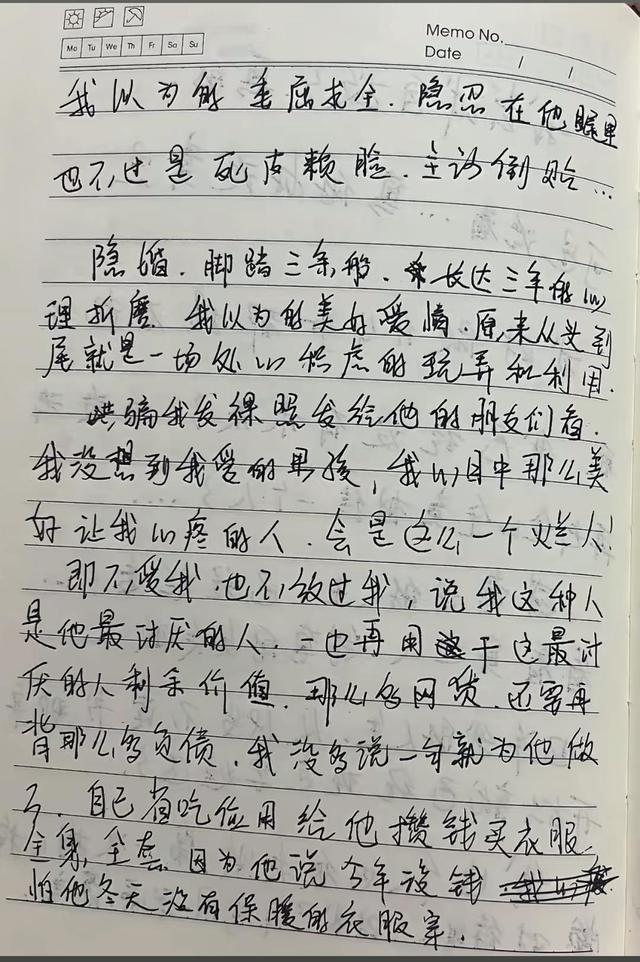 Memo No.
Date / /
Mo Tu We Th Fr Sa Su
我以为的委屈求全.隐忍在他眼里
也不过是死皮赖脸.主动倒贴...
隐婚.脚踏三条船.长达三年的心
理折磨.我以为的美好爱情.原来从头到
尾就是一场处心积虑的玩弄和利用.
哄骗我发裸照发给他的朋友们看.
我没想到我爱的男孩,我心目中那么美
好让我心疼的人.会是这么一个烂人!
即不爱我.也不放过我,说我这种人
是他最讨厌的人.一边再用 干这最讨
厌的人剩余价值.那么多网贷.还要再
背那么多负债.我没多说一句就为他做
了.自己省吃俭用给他攒钱买衣服,
全身全套.因为他说今年没钱
怕他冬天没有保暖的衣服穿.